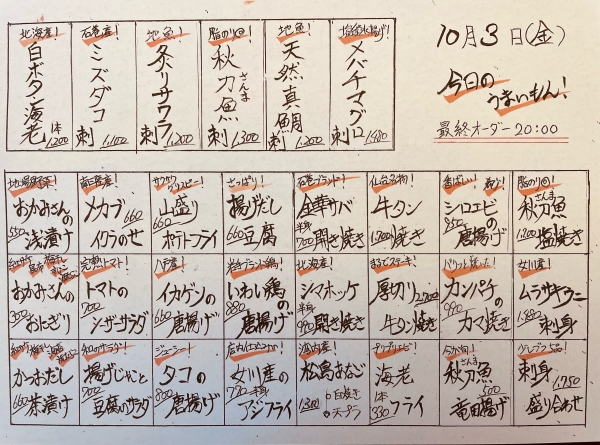 10月3日(金)
今日の
うまいもん!
最終オーダー 20:00
北海道産!
白ボタン海老
1本
1,200
石巻産!
ミズダコ
刺
1,100
地魚!
炙りサワラ
刺
1,200
脂のり◎!
秋刀魚
さんま
刺
1,300
地魚!
天然真鯛
刺
1,200
メバチマグロ
刺
1,480
おかみさんの
浅漬け
550
メカブ
イクラのせ
660
サクサク
クリスピー!
山盛り
ポテトフライ
660
さっぱり!
揚げだし
豆腐
660
石巻ブランド!
金華サバ
半身
開き焼き
仙台名物!
牛タン
焼き
1,200
香ばしい!
シロエビの
唐揚げ
850
脂のり◎!
秋刀魚
さんま
塩焼き
1,200
おかみさんの
おにぎり
350
完熟トマト!
トマトの
シーザーサラダ
700
八戸産!
イカゲソの
唐揚げ
660
岩手ブランド鶏!
いわい鶏の
唐揚げ
880
北海道産!
シマホッケ
半身
開き焼き
990
まるでステーキ!
厚切り
牛タン焼き
2,200
カンパチの
カマ焼き
990
女川産!
ムラサキウニ
刺身
1,880
かつおだし
茶漬け
660
和のサラダ!
揚げじゃこと
豆腐のサラダ
700
ジューシー!
タコの
唐揚げ
800
店内人気No.1!
女川産の
アジフライ
半身
松島あなご
1,300
○白焼き
○天プラ
プリプリエビ!
海老
フライ
1本
330
秋刀魚
さんま
竜田揚げ
刺身
盛り合わせ
1,750